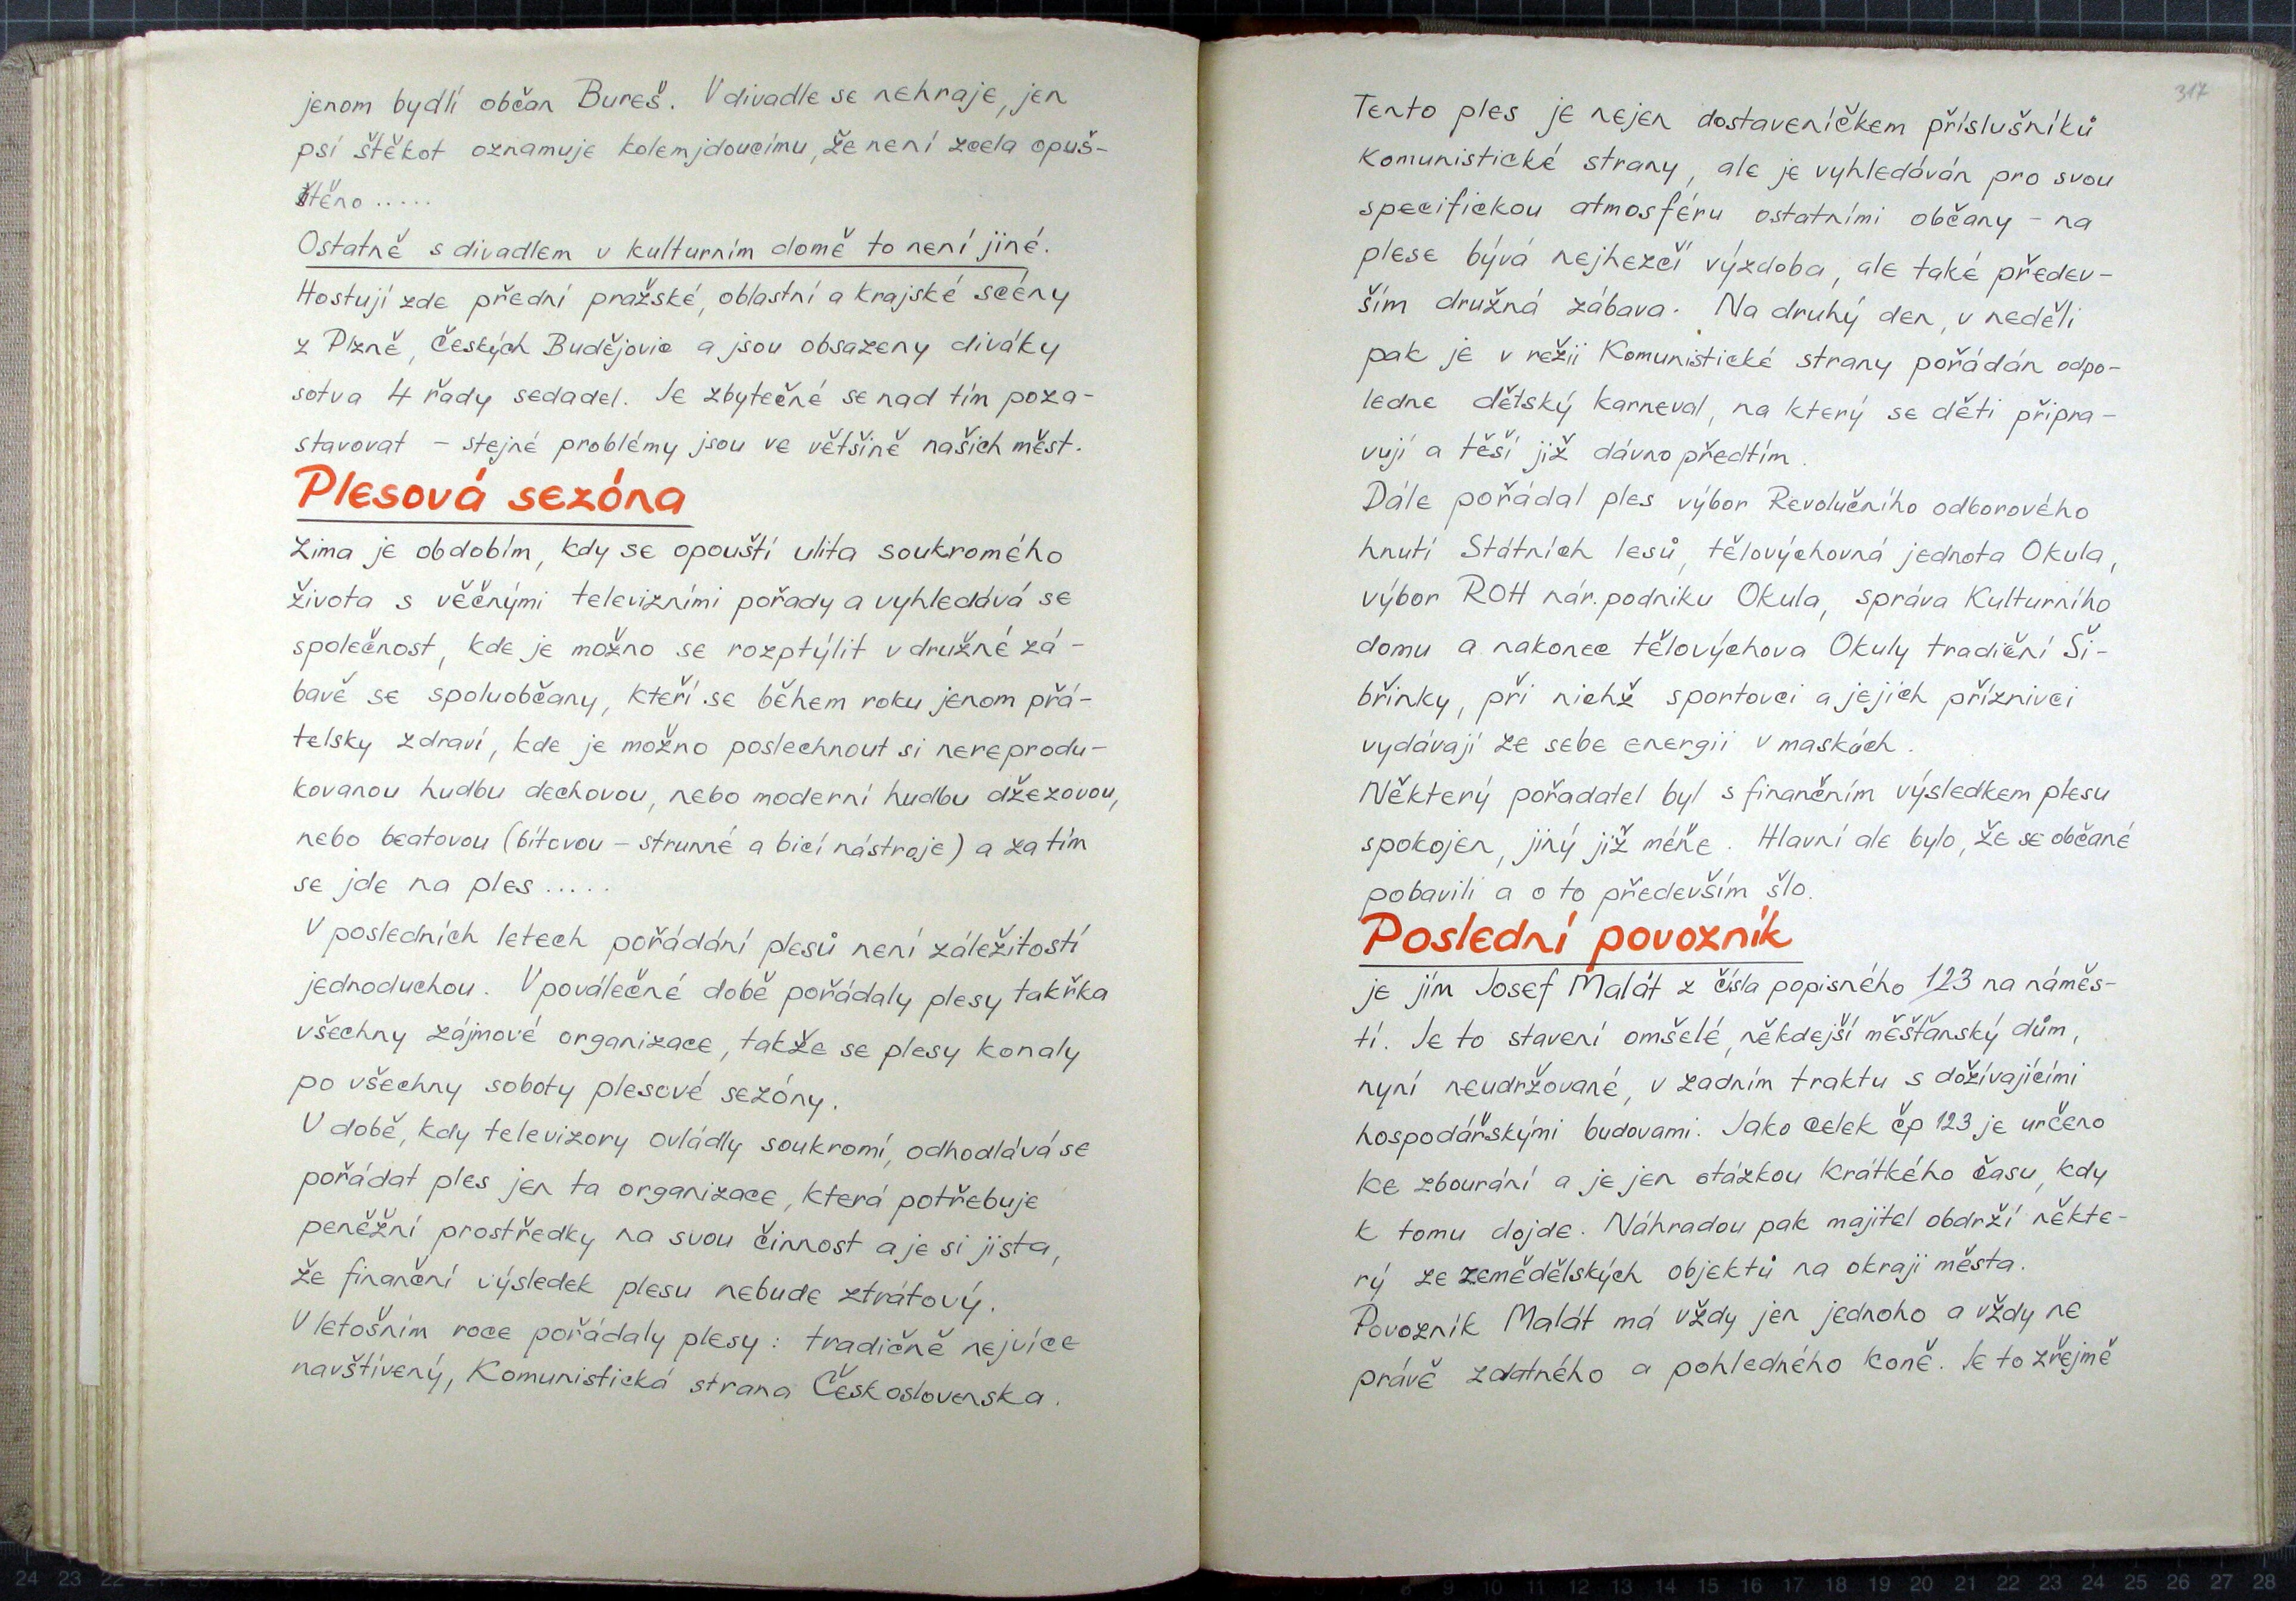 jenom bydlí občan Bureš. V divadle se nehraje, jen
psí štěkot oznamuje kolemjdoucímu, že není zcela opuš-
těno .....
Ostatně s divadlem v kulturním domě to není jiné.
Hostují zde přední pražské, oblastní a krajské scény
z Plzně, Českých Budějovic a jsou obsazeny diváky
sotva 4 řady sedadel. Je zbytečné se nad tím poza-
stavovat – stejné problémy jsou ve většině našich měst.
Plesová sezóna
Zima je obdobím, kdy se opouští ulita soukromého
života s věčnými televizními pořady a vyhledává se
společnost, kde je možno se rozptýlit v družné zá-
bavě se spoluobčany, kteří se během roku jenom přá-
telsky zdraví, kde je možno poslechnout si nereprodu-
kovanou hudbu dechovou, nebo moderní hudbu džezovou,
nebo beatovou (bítovou – strunné a bicí nástroje) a za tím
se jde na ples .....
V posledních letech pořádání plesů není záležitostí
jednoduchou. V poválečné době pořádaly plesy takřka
všechny zájmové organizace, takže se plesy konaly
po všechny soboty plesové sezóny.
V době, kdy televizory ovládly soukromí, odhodlává se
pořádat ples jen ta organizace, která potřebuje
peněžní prostředky na svou činnost a je si jista,
že finanční výsledek plesu nebude ztrátový.
V letošním roce pořádaly plesy: tradičně nejvíce
navštívený, Komunistická strana Československa.
317
Tento ples je nejen dostaveníčkem příslušníků
Komunistické strany, ale je vyhledáván pro svou
specifickou atmosféru ostatními občany – na
plese bývá nejhezčí výzdoba, ale také předev-
ším družná zábava. Na druhý den, v neděli
pak je v režii Komunistické strany pořádán odpo-
ledne dětský karneval, na který se děti připra-
vují a těší již dávno předtím.
Dále pořádal ples výbor Revolučního odborového
hnutí Státních lesů, tělovýchovná jednota Okula,
výbor ROH nár. podniku Okula, správa Kulturního
domu a nakonec tělovýchova Okuly tradiční Ši-
břinky, při nichž sportovci a jejich příznivci
vydávají ze sebe energii v maskách.
Některý pořadatel byl s finančním výsledkem plesu
spokojen, jiný již méně. Hlavní ale bylo, že se občané
pobavili a o to především šlo.
Poslední povozník
je jím Josef Malát z čísla popisného 123 na náměs-
tí. Je to stavení omšelé, někdejší měšťanský dům,
nyní neudržované, v zadním traktu s dožívajícími
hospodářskými budovami. Jako celek čp 123 je určeno
ke zbourání a je jen otázkou krátkého času, kdy
k tomu dojde. Náhradou pak majitel obdrží někte-
rý ze zemědělských objektů na okraji města.
Povozník Malát má vždy jen jednoho a vždy ne
právě zdatného a pohledného koně. Je to zřejmě
24 23 22
8 9 10 11 12 13 14 15 16 17 18 19 20 21 22 23 24 25 26 27 28